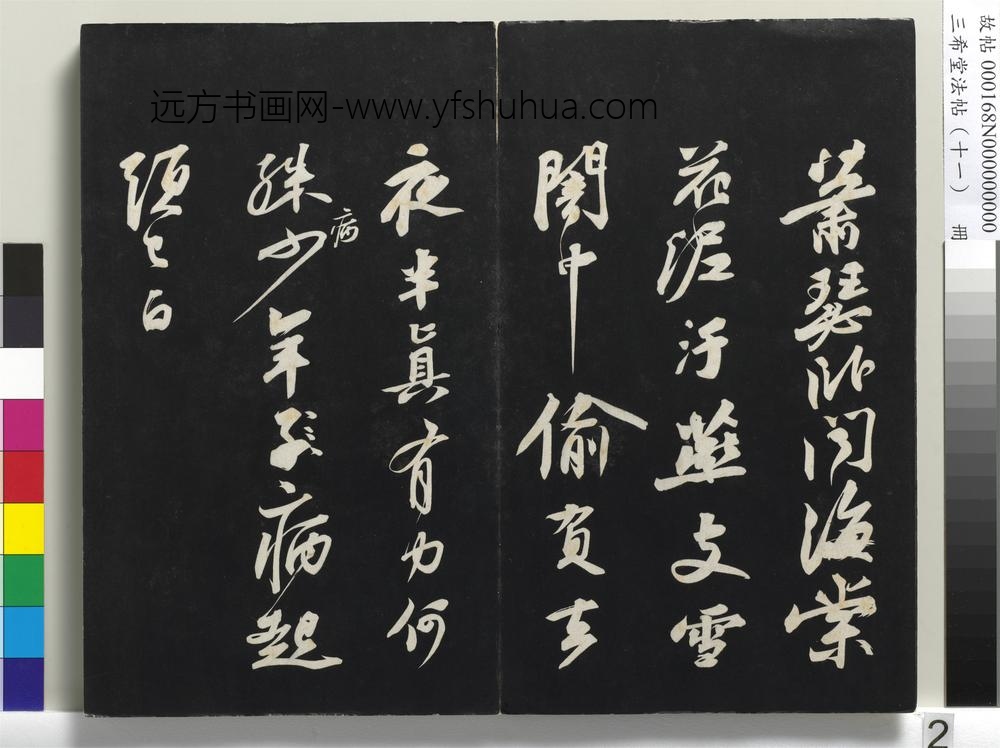 萧瑟卧闻海棠
花泥污燕支雪
闇中偷负去
夜半真有力何
殊少年子病起
病
须已白
远方书画网-www.yfshuhua.com
故帖 000168N000000000
三希堂法帖（十一） 册
2